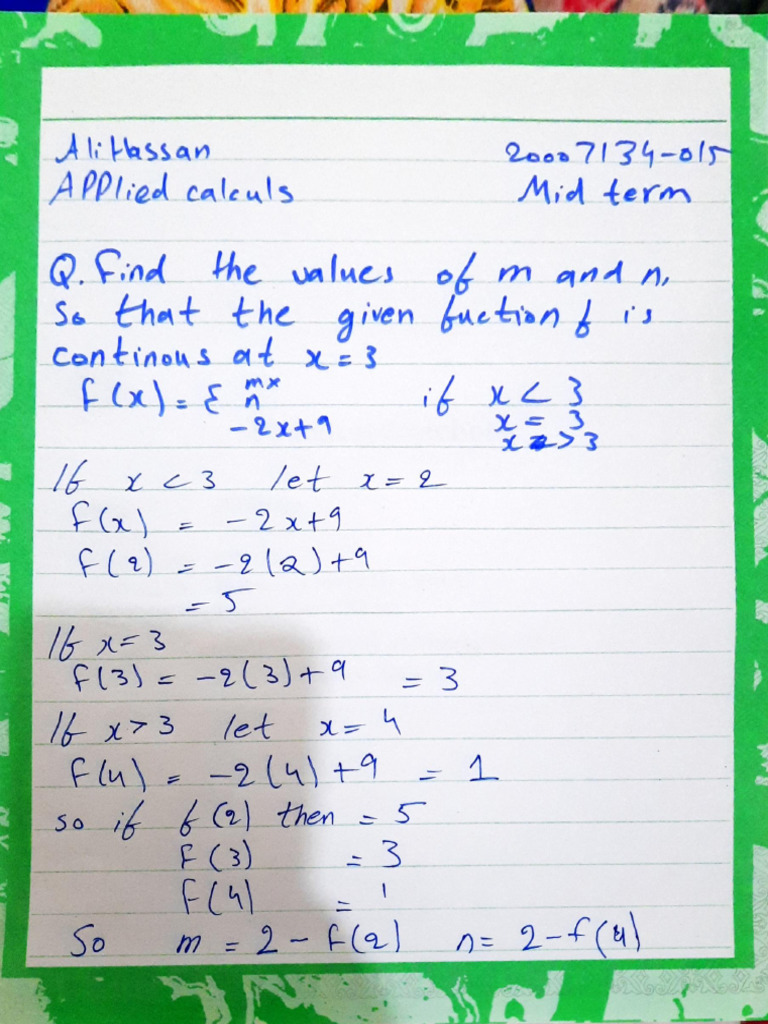 Ali Hassan 20007134-015
APPlied calculs Mid term
Q. Find the values of m and n,
So that the given fuction f is
continous at x = 3
f(x) = { mx if x < 3
n x = 3
-2x+9 x > 3
If x < 3 let x = 2
f(x) = -2x+9
f(2) = -2(2)+9
= 5
If x = 3
f(3) = -2(3)+9 = 3
If x > 3 let x = 4
f(4) = -2(4)+9 = 1
so if f(2) then = 5
F(3) = 3
F(4) = 1
So m = 2 - f(2) n = 2 - f(4)